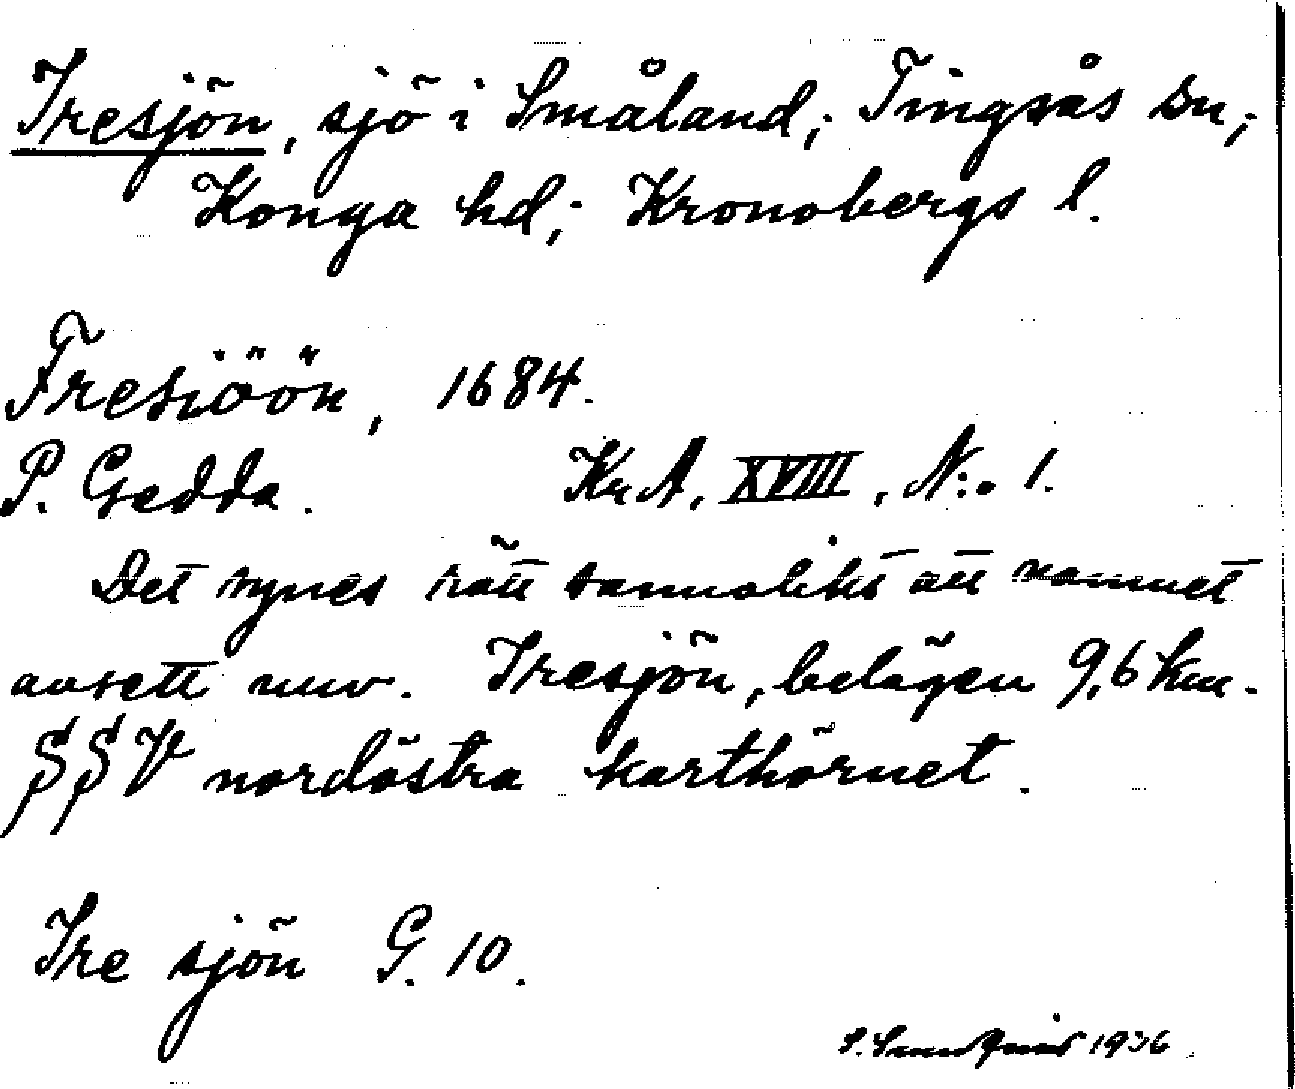 Tresjön, sjö i Småland; Tingsås sn;
Konga hd; Kronobergs l.
Fresiöön, 1684.
P. Gedda. Kr. A. XVIII, N:o 1.
Det synes rätt sannolikt att namnet
avsett nuv. Tresjön, belägen 9,6 km.
SSV nordöstra karthörnet.
Tre sjön G. 10.
S. Sundquist 1936